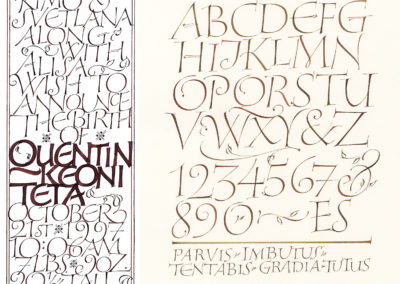 KIMO &
SVETLANA
ALONG
WITH
ALISA
WISH TO
ANNOUNCE
THE BIRTH
OF
QUENTIN
KEONI
TETA
OCTOBER
21st 1997
10:06AM
7LBS 9OZ
20½ TALL
ABCDEFG
HIJKLMN
OPQRSTU
VWXY&Z
1234567&
890 ES
PARVIS IMBUTUS
TENTABIS GRADIA TUTUS